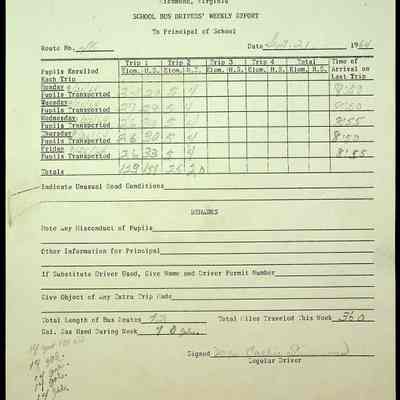 Richmond, Virginia
SCHOOL BUS DRIVERS' WEEKLY REPORT
To Principal of School
Route No. Date 21 1964
Trip 1 Trip 2 Trip 3 Trip 4 Total Time of
Pupils Enrolled Elem. H.S. Elem. H.S. Elem. H.S. Elem. H.S. Elem. H.S. Arrival on
Each Trip Last Trip
Monday
Pupils Transported 5 4 8:50
Tuesday
Pupils Transported 27 29 5 4 8:50
Wednesday
Pupils Transported 5 4 8:55
Thursday
Pupils Transported 26 30 5 4 8:50
Friday
Pupils Transported 26 33 5 4 8:55
Totals 129 151 25 20
Indicate Unusual Road Conditions
REMARKS
Note Any Misconduct of Pupils
Other Information for Principal
If Substitute Driver Used, Give Name and Driver Permit Number
Give Object of Any Extra Trip Made
Total Length of Bus Routes 72 Total Miles Traveled This Week 360
Gal. Gas Used During Week 70
Signed Mrs. Carrie
Regular Driver
14 gal.
14 gal.
14 gal.
14 gal.